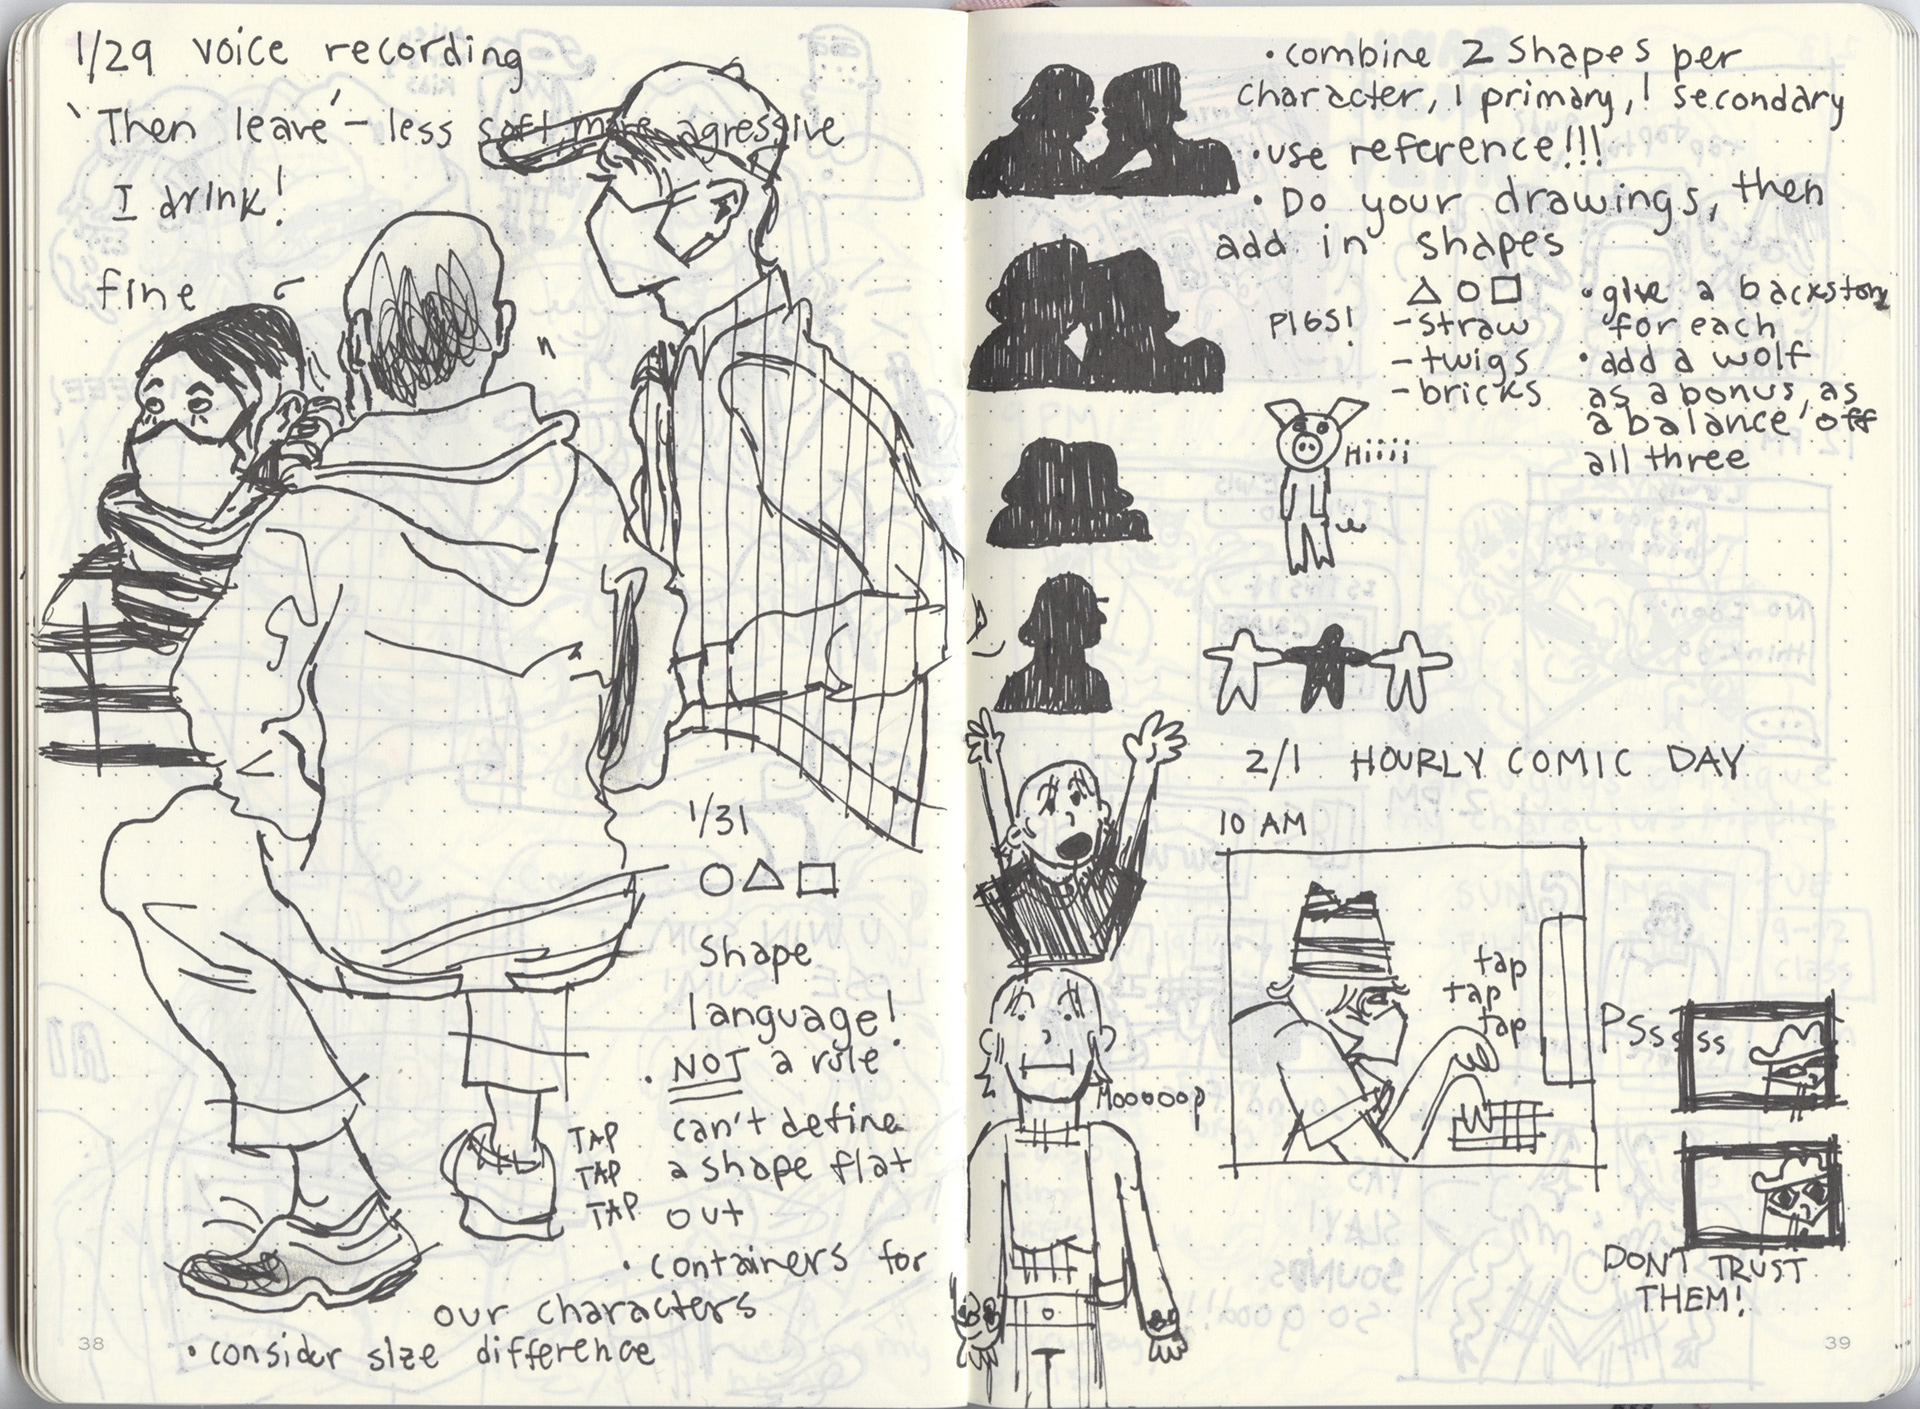 1/29 voice recording
'Then leave' - less soft more agressive
I drink!
fine
1/31
Shape
language!
• NOT a rule
can't define
a shape flat
out
TAP
TAP
TAP
• containers for
our characters
• consider size difference
38
• combine 2 shapes per
character, 1 primary, 1 secondary
• use reference!!!
• Do your drawings, then
add in shapes
PIGS!
- straw
- twigs
- bricks
• give a backstory
for each
• add a wolf
as a bonus, as
a balance off
all three
Hiiii
2/1 HOURLY COMIC DAY
10 AM
tap
tap
tap
Psssss
Mooooop
DON'T TRUST
THEM!
39